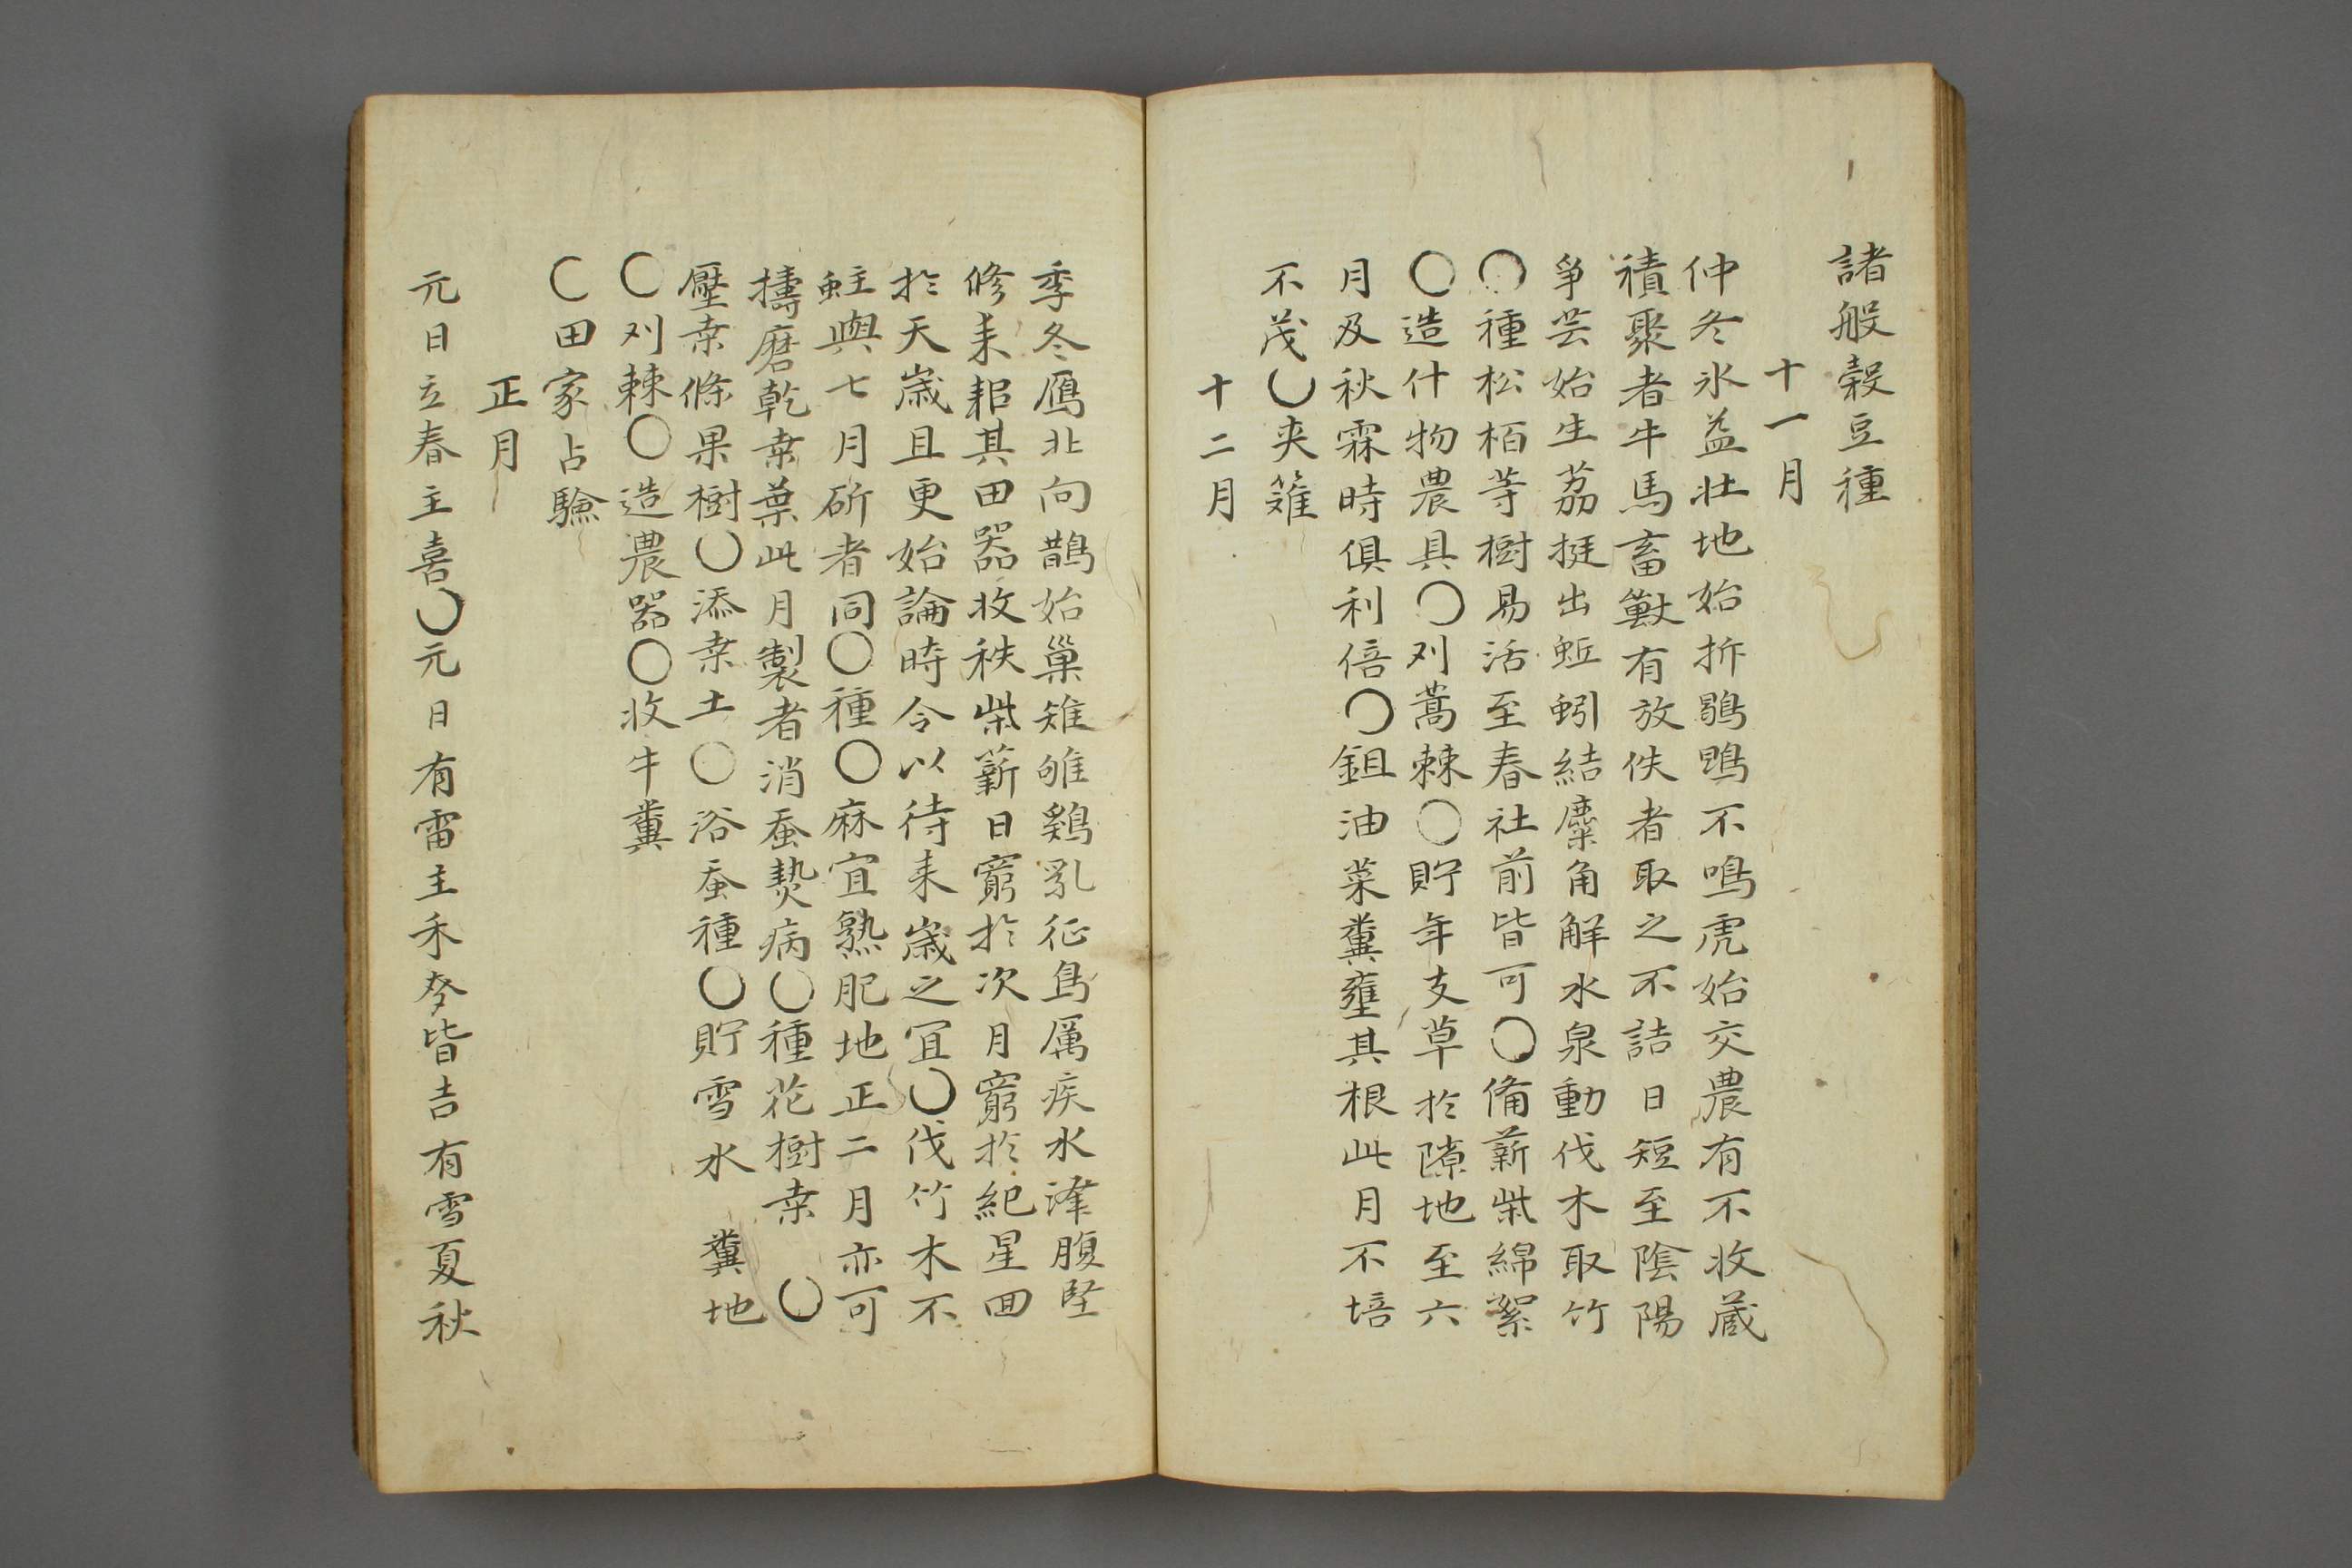 諸般穀豆種
十一月
仲冬氷益壮地始拆鶡鴠不鳴虎始交農有不收蔵
積聚者牛馬畜獸有放佚者取之不詰日短至陰陽
爭芸始生荔挺出蚯蚓結麋角解水泉動伐木取竹
〇種松栢等樹易活至春社前皆可〇俻薪柴綿絮
〇造什物農具〇刈蒿棘〇貯年支草於隙地至六
月及秋霖時俱利倍〇鉏油菜糞壅其根此月不培
不茂〇夾籬
十二月
季冬鴈北向鵲始巢雉雊鷄乳征鳥厲疾水澤腹堅
修耒耜其田器收秩柴薪日窮於次月窮於紀星回
於天歲且更始論時令以待来歲之冝〇伐竹木不
蛀與七月斫者同〇種〇麻宜熟肥地正二月亦可
擣磨乾桒葉此月製者消蚕𤍠病〇種花樹桒〇
壓桒條果樹〇添桒土〇浴蚕種〇貯雪水 糞地
〇刈棘〇造農器〇收牛糞
〇田家占驗
正月
元日立春主喜〇元日有雷主禾麥皆吉有雪夏秋